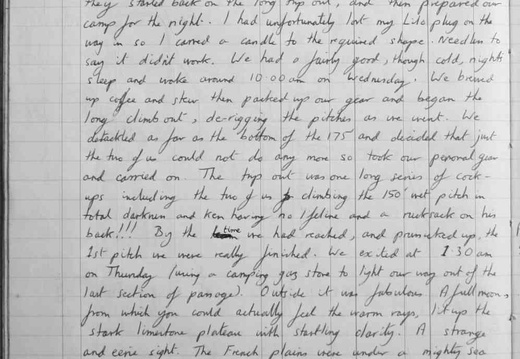 they started back on the long trip out, and then prepared our
camp for the night. I had unfortunately lost my Lilo plug on the
way in so I carved a candle to the required shape. Needless to
say it didn't work. We had a fairly good, though cold, nights
sleep and woke around 10 00 am on Wednesday. We brewed
up coffee and stew then packed up our gear and began the
long climb out, de-rigging the pitches as we went. We
detackled as far as the bottom of the 175' and decided that just
the two of us could not do any more so took our personal gear
and carried on. The trip out was one long series of cock-
ups including the two of us climbing the 150' wet pitch in
total darkness and Ken having no lifeline and a rucksack on his
back!!! By the time we had reached, and prusicked up, the
1st pitch we were really finished. We exited at 1 30 am
on Thursday (using a camping gaz stove to light our way out of the
last section of passage). Outside it was fabulous. A full moon,
from which you could actually feel the warm rays, lit up the
stark limestone plateau with startling clarity. A strange
and eerie sight. The French plains were under a mighty sea